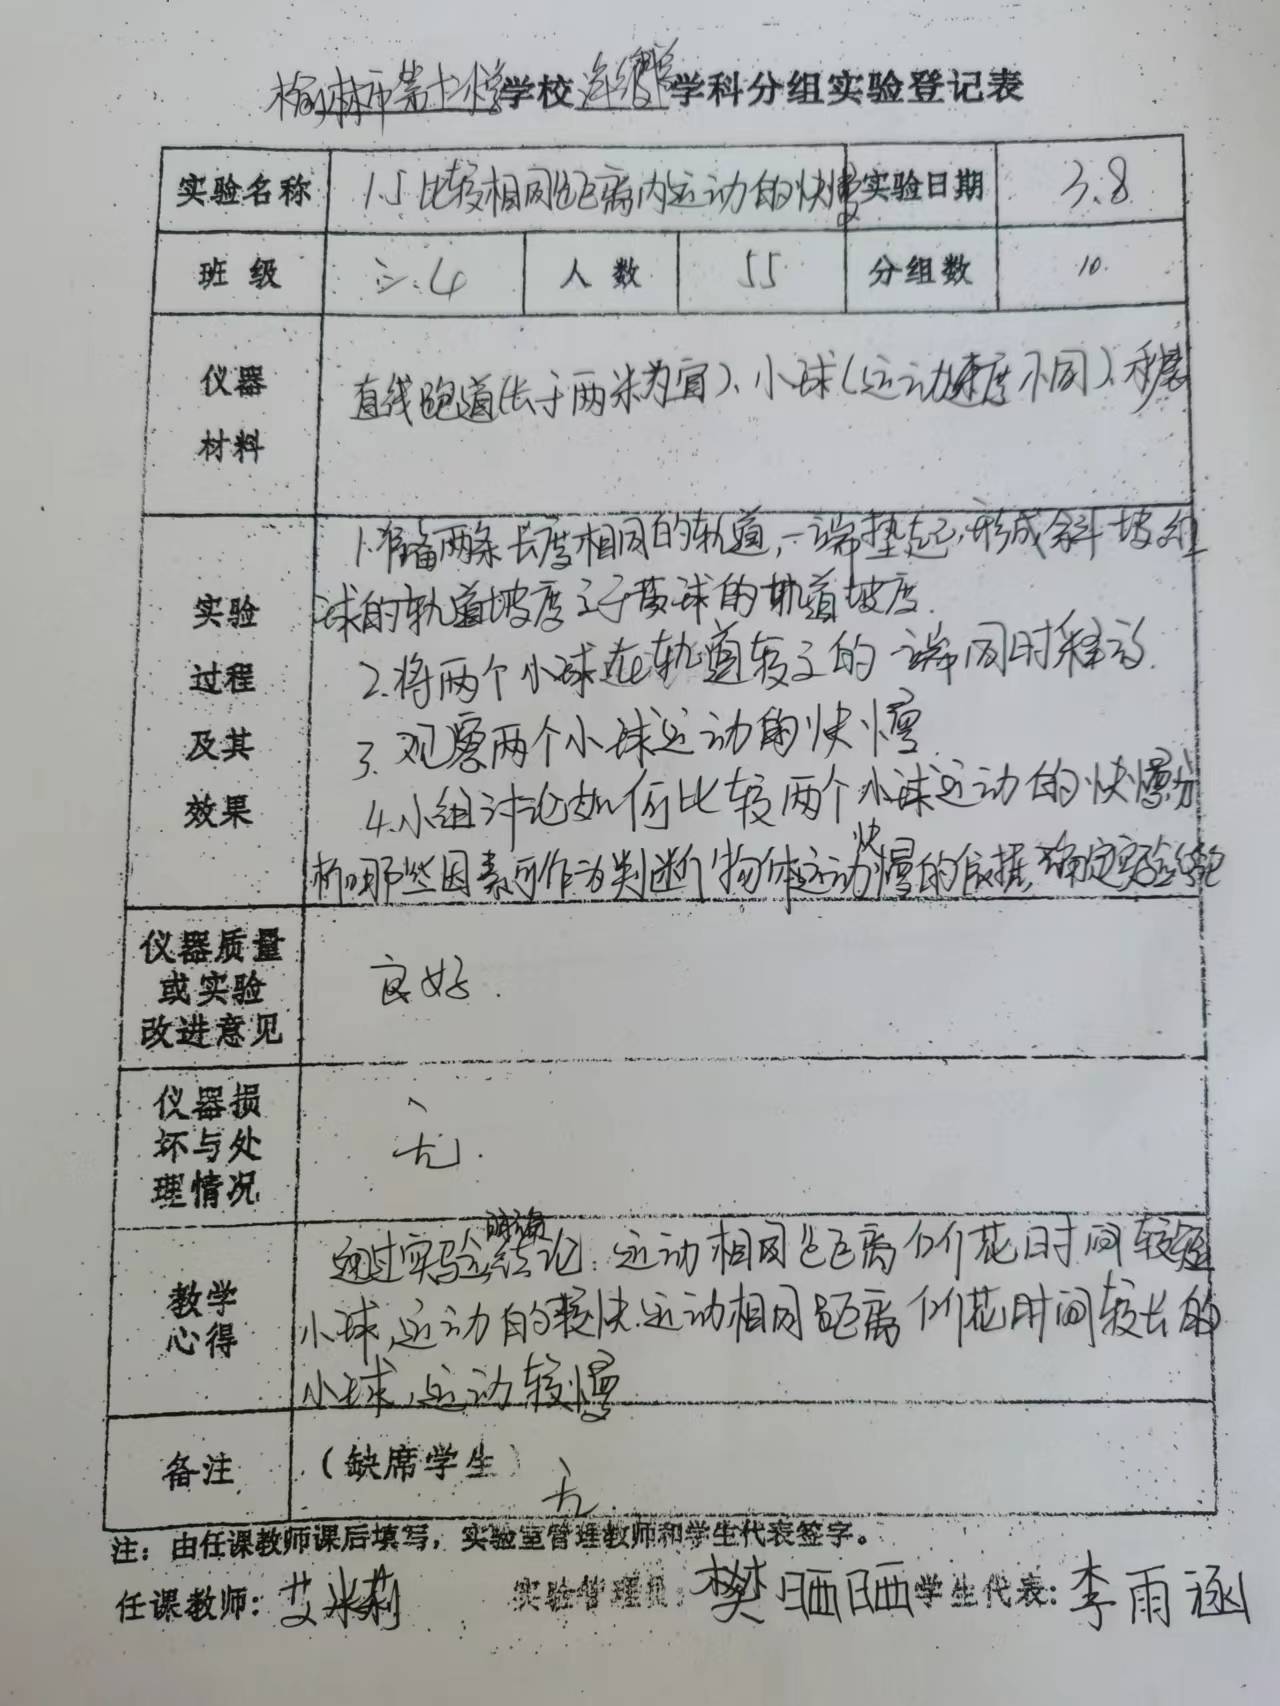 榆林市第十二小学学校 学科分组实验登记表
实验名称 1.5比较相同距离内运动的快慢 实验日期 3.8
班级 三.4 人数 55 分组数 10.
仪器材料 直线跑道(长于两米为宜)、小球(运动速度不同)、秒表
实验过程及其效果
1.准备两条长度相同的轨道,一端垫起,形成斜坡红
球的轨道坡度 于黄球的轨道坡度.
2.将两个小球在轨道较 的一端同时释放.
3.观察两个小球运动的快慢
4.小组讨论如何比较两个小球运动的快慢分
析哪些因素可作为判断物体运动快慢的依据,确定实验结论
仪器质量或实验改进意见 良好.
仪器损坏与处理情况 无.
教学心得
通过实验 结论:运动相同距离 花时间较短
小球,运动的较快.运动相同距离 花时间较长的
小球,运动较慢
备注 (缺席学生) 无.
注:由任课教师课后填写,实验室管理教师和学生代表签字。
任课教师:艾米莉 实验管理员:樊晒晒 学生代表:李雨涵